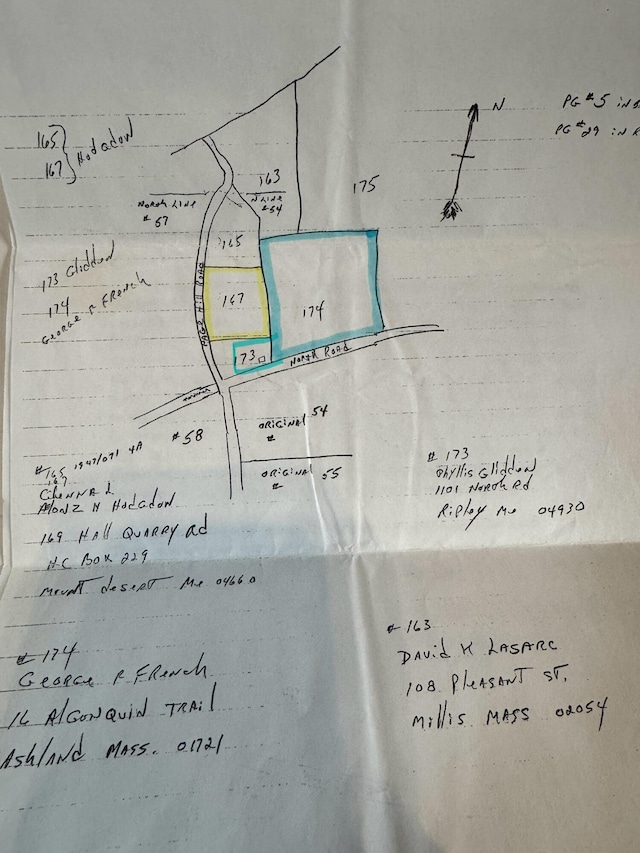 165
167
Hodgdon
N
PG #5 in
PG #29 in R
163
175
North Line
#57
N Line
#54
165
173 Glidden
174
George R French
167
174
Hill Road
173
North Road
#58
original 54
#
original 55
#
#165 1947/071 4A
167
Alonz H Hodgdon
169 Hall Quarry Rd
HC Box 229
Mount Desert Me 04660
#173
Phyllis Glidden
1101 North Rd
Ripley Me 04930
#174
George R French
16 Algonquin Trail
Ashland Mass. 01721
#163
David K
108 Pleasant St.
Millis Mass 02054